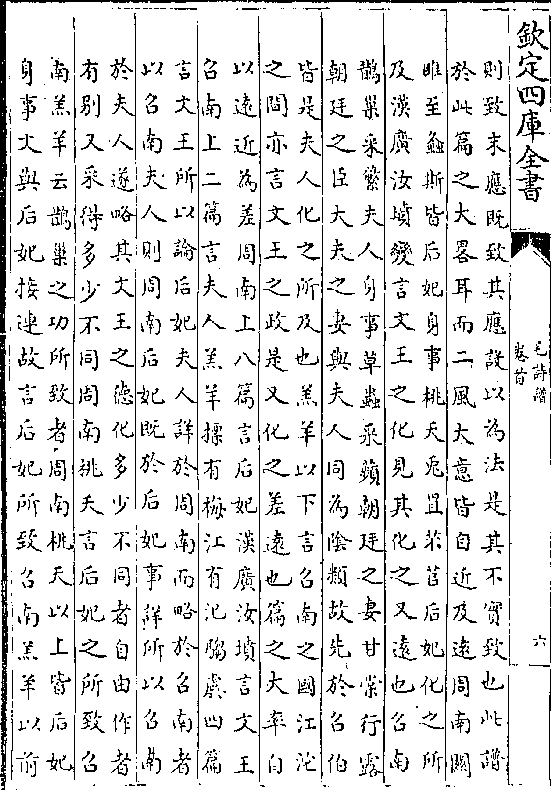 欽定四庫全書
毛詩譜
卷首
六
則致末應既致其應設以為法是其不實致也此譜
於此篇之大畧耳而二風大意皆自近及遠周南關
雎至螽斯皆后妃身事桃夭兎罝芣苢后妃化之所
及漢廣汝墳變言文王之化見其化之又遠也召南
鵲巢采蘩夫人身事草蟲采蘋朝廷之妻甘棠行露
朝廷之臣大夫之妻與夫人同為隂類故先於召伯
皆是夫人化之所及也羔羊以下言召南之國江沱
之間亦言文王之政是又化之差遠也篇之大率自
以遠近為差周南上八篇言后妃漢廣汝墳言文王
召南上二篇言夫人羔羊摽有梅江有汜騶虞四篇
言文王所以論后妃夫人詳於周南而略於召南者
以召南夫人則周南后妃既於后妃事詳所以召南
於夫人遂略其文王之德化多少不同者自由作者
有别又采得多少不同周南桃夭言后妃之所致召
南羔羊云鵲巢之功所致者周南桃夭以上皆后妃
身事文與后妃接連故言后妃所致召南羔羊以前